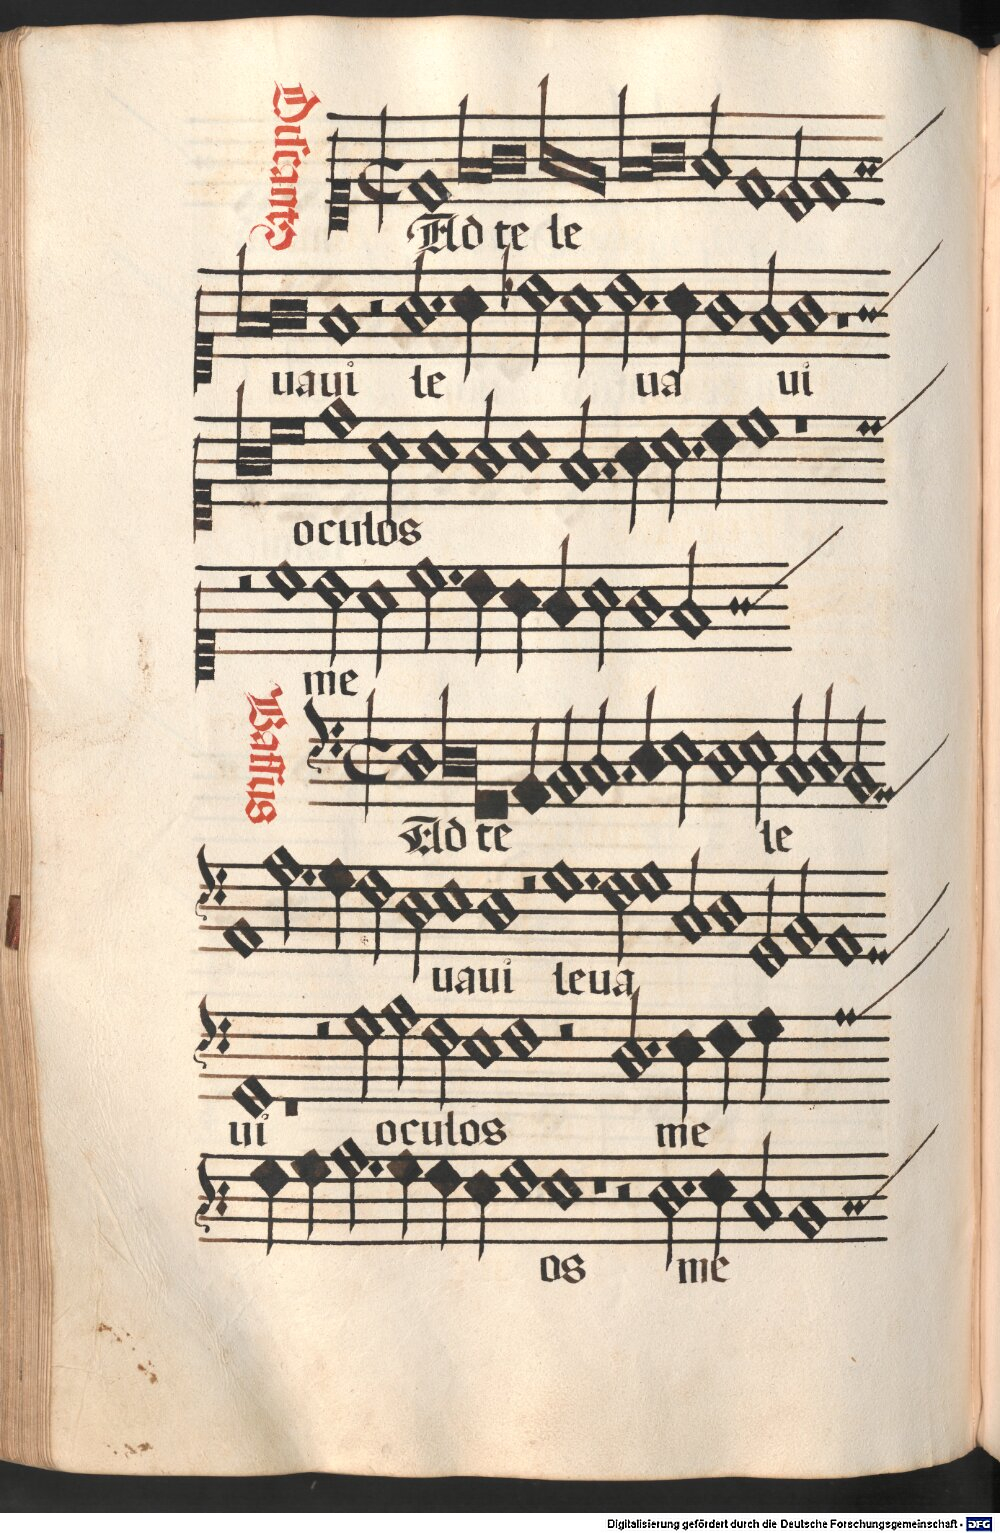 Discantus
Ad te le
uaui le ua ui
oculos
me
Bassus
Ad te le
uaui leua
ui oculos me
os me
Digitalisierung gefördert durch die Deutsche Forschungsgemeinschaft - DFG